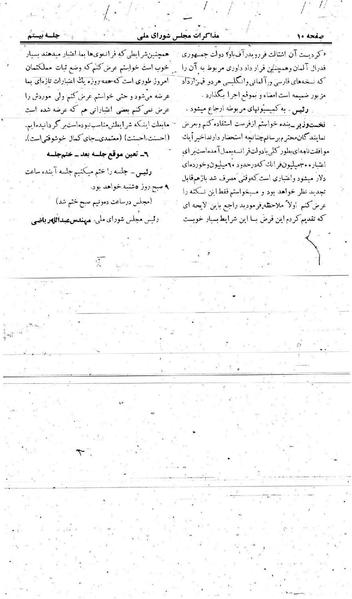 صفحه ۱۰
مذاکرات مجلس شورای ملی
جلسه بیستم
«کردیت آن اشتالت فرویدرآف باو» دولت جمهوری
فدرال آلمان وهمچنین قرار داد داوری مربوط به آن را
که نسخه‌های فارسی و آلمانی وانگلیسی هر دو قرارداد
مزبور ضمیمه است امضاء و بموقع اجرا بگذارد.
رئیس - به کمیسیونهای مربوطه ارجاع میشود.
نخست‌وزیر - بنده خواستم از فرصت استفاده کنم وعرض
نمایندگان محترم برسانم چنانچه استحضار دارند اخیراً یک
موافقت‌نامه‌ای بطور کلی با دولت فرانسه بعمل آمده است برای
اعتبار ۳۰۰ میلیون فرانک که در حدود ۶۰ میلیون وخورده‌ای
دلار میشود واعتباری است که وقتی مصرف شد باز هم قابل
تجدید نظر خواهد بود و میخواستم فقط این نکته را
عرض کنم اولاً ملاحظه فرمودید راجع باین لایحه ای
که تقدیم کردم این قرض با این شرایط بسیار خوبست
همچنین شرایطی که فرانسوی‌ها بما اعتبار میدهند بسیار
خوب است خواستم عرض کنم که وضع ثبات مملکتمان
امروز طوری است که همه روزه یک اعتبارات تازه‌ای بما
عرضه میشود و حتی خواستم عرض کنم ولی موردش را
عرض نمی کنم بعضی اعتباراتی هم که عرضه شده است
مابعلت اینکه شرایطش مناسب نبوده است برگردانده‌ایم.
(احسنت، احسنت) (معتمدی - جای کمال خوشوقتی است)
۶- تعیین موقع جلسه بعد - ختم جلسه
رئیس - جلسه را ختم میکنیم جلسه آینده ساعت
۹ صبح روز شنبه خواهد بود.
(مجلس در ساعت ده ونیم صبح ختم شد)
رئیس مجلس شورای ملی. مهندس عبدالله ریاضی